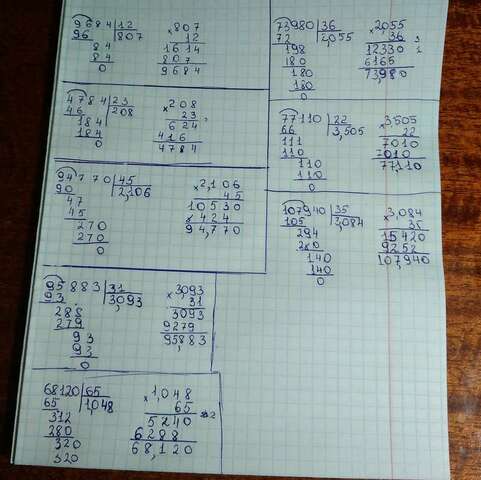 9684 | 12
96 807
84
84
0
×807
12
1614
807
9684
4784 | 23
46 208
184
184
0
×208
23
624
416
4784
94770 | 45
90 2,106
47
45
270
270
0
×2,106
45
10530
8424
94,770
95883 | 31
93 3,093
288
279
93
93
0
×3,093
31
3093
9279
95,883
68120 | 65
65 1,048
312
280
320
320
×1,048
65
5240
6288
68,120
73980 | 36
72 2,055
198
180
180
180
0
×2,055
36
12330
6165
73,980
77110 | 22
66 3,505
111
110
110
110
0
×3,505
22
7010
7010
77,110
107940 | 35
105 3,084
294
280
140
140
0
×3,084
35
15420
9252
107,940